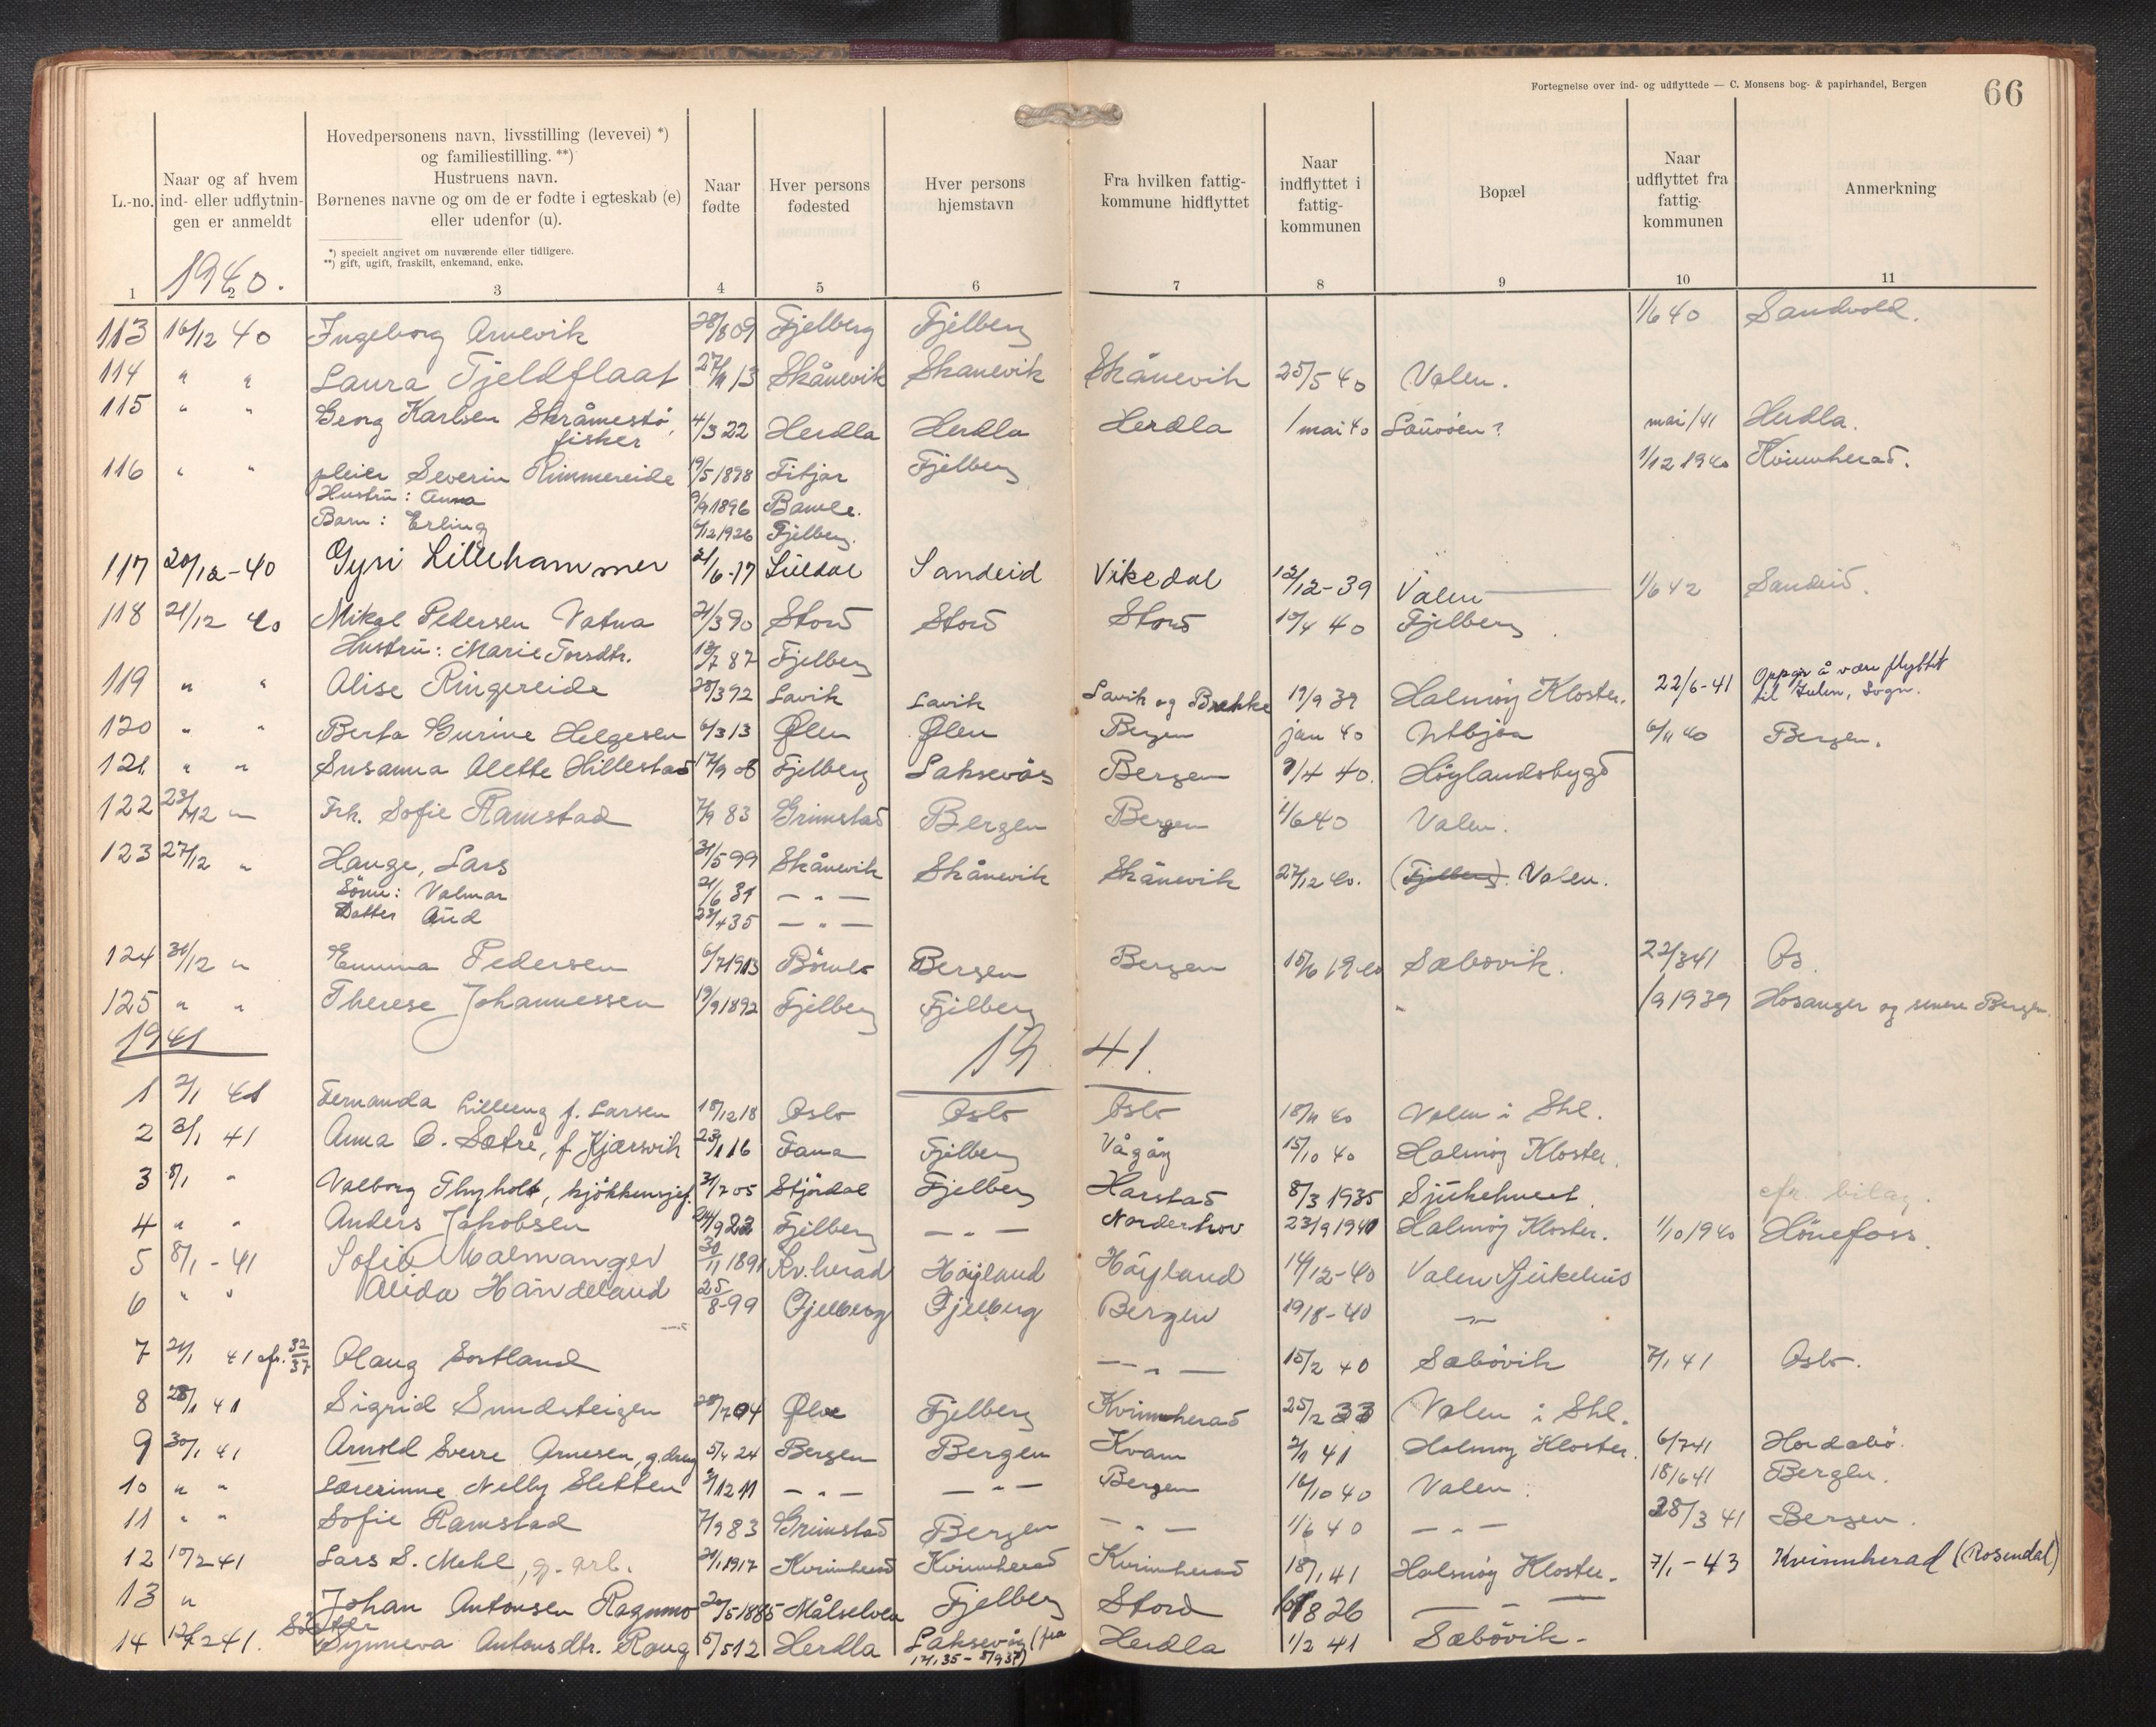 Fortegnelse over ind- og udflyttede — C. Monsens bog- & papirhandel, Bergen
66
L.-no.
Naar og af hvem ind- eller udflytnin- gen er anmeldt
Hovedpersonens navn, livsstilling (levevei) *) og familiestilling. **) Hustruens navn. Børnenes navne og om de er fødte i egteskab (e) eller udenfor (u).
*) specielt angivet om nuværende eller tidligere.
**) gift, ugift, fraskilt, enkemand, enke.
Naar fødte
Hver persons fødested
Hver persons hjemstavn
Fra hvilken fattig- kommune hidflyttet
Naar indflyttet i fattig- kommunen
Bopæl
Naar udflyttet fra fattig- kommunen
Anmerkning
1940.
1 2 3 4 5 6 7 8 9 10 11
113 16/12 40 Ingeborg Arnevik 28/8 09 Fjelberg Fjelberg 1/6 40 Sandvold.
114 " " Laura Fjeldflaat 27/11 13 Skånevik Skanevik Skånevik 25/5 40 Valen.
115 " " Georg Karlsen Skråmestø, 4/3 22 Herdla Herdla Herdla 1 mai 40 mai/41 Herdla.
fisker
116 " " pleier Severin Rimmereide 19/5 1898 Fitjar Fjelberg 1/12 1940 Kvinnherad.
Hustru: Anna 9/9 1896 Bamle.
Barn: Erling 6/12 1926 Fjelberg.
117 20/12-40 Gyri Lillehammer 21/6-17 Suldal Sandeid Vikedal 12/12-39 Valen 1/6 42 Sandeid.
118 21/12 40 Mikal Pedersen Vatna 21/3 90 Stord Stord Stord 10/4 40 Fjelberg.
Hustru: Marie Torsdtr. 13/7 87 Fjelberg
119 " " Alise Ringereide 28/3 92 Lavik Lavik Lavik og Brekke 19/9 39 Halsnøy Kloster. 22/6-41 Oppgir å være flyttet
til Gulen, Sogn.
120 " " Berta Gurine Helgesen 6/3 13 Ølen Ølen Bergen jan 40 Utbjoa 6/11 40 Bergen.
121 " " Susanna Alette Hillestad 17/9 08 Fjelberg Laksevåg Bergen 9/4 40. Høylandsbygd
122 23/12 " Frk. Sofie Ramstad 7/9 83 Grimstad Bergen Bergen 1/6 40 Valen.
123 27/12 " Hauge, Lars 31/5 99 Skånevik Skånevik Skånevik 27/12 40. (Fjelberg) Valen.
Sönn: Valmar 21/6 31 — " —
Datter Aud 23/4 35 — " —
124 31/12 " Emma Pedersen 6/7 1913 Bömlo Bergen Bergen 15/6 1940 Sæbøvik. 22/3 41 Os.
125 " " Therese Johannessen 19/9 1892 Fjelberg Fjelberg " /9 1939 Hosanger og senere Bergen.
1941
19 41.
1 2/1 41 Fernanda Lilleeng f. Larsen 18/12 18 Oslo Oslo Oslo 18/11 40 Valen i Shl.
2 3/1 41 Anna O. Sætre, f. Kjærsvik 23/1 16 Fana Fjelberg Vågåy 15/10 40 Halsnøy Kloster.
3 8/1 " Valborg Thyholt, kjøkkensjef. 31/7 05 Stjördal Fjelberg Harstad 8/3 1935 Sjukehuset cfr. bilag.
4 " " Anders Jakobsen 24/9 22 Fjelberg — " — Norderhov 23/9 1940 Halsnøy Kloster. 1/10 1940 Hönefoss.
5 8/1-41 Sofie Malmanger 30/11 1891 Kv.herad Høyland Høyland 14/12-40 Valen Sjukehus
6 " " Alida Handeland 25/8-99 Fjelberg Fjelberg Bergen 19/8-40 — " —
7 21/1 41 cfr. 32/37 Olaug Sortland — " — 15/2 40 Sæbövik 7/1 41 Oslo.
8 28/1 41 Sigrid Sundsteigen 28/7 04 Ølve Fjelberg Kvinnherad 25/2 33 Valen i Shl.
9 30/1 41 Arnold Sverre Arnesen, g.dreng 5/4 24 Bergen Bergen Kvam 2/1 41 Halsnøy Kloster. 6/7 41 Hordabö.
10 " " Lærerinne Nelly Sletten 2/12 11 — " — — " — Bergen 16/10 40 Valen. 18/6 41 Bergen.
11 " " Sofie Ramstad 7/9 83 Grimstad Bergen — " — 1/6 40 — " — 28/3 41 Bergen.
12 10/2 41 Lars S. Mehl, g.-arb. 21/1 1917 Kvinnherad Kvinnherad Kvinnherad 18/1 41 Halsnøy Kloster. 7/1-43 Kvinnherad (Rosendal)
13 " Johan Antonsen Ragnmo 20/5 1885 Målselven Fjelberg Stord 8 26 — " —
14 12/2 41. Synneva Antonsdtr. Raug 5/5 12 Herdla Laksevåg (fra Herdla 1/2 41 Sæbövik.